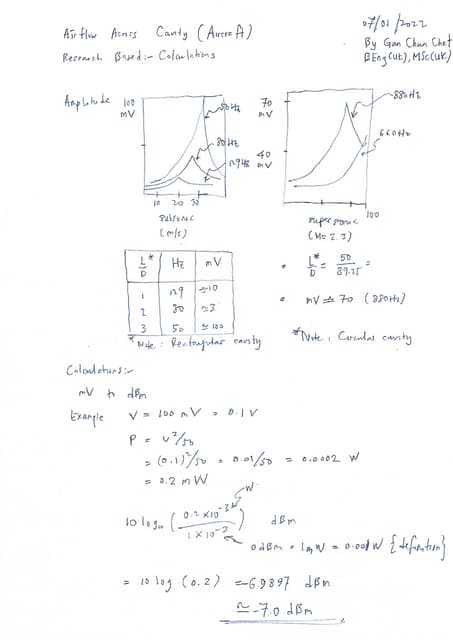 Airflow Across Cavity (Aircraft)
07/01/2022
Research Based:- Calculations
By Gan Chun Chet
BEng(UK), MSc(UK)
Amplitude 100 mV
50Hz
80Hz
129Hz
10 20 30
subsonic
(m/s)
70 mV
40 mV
880Hz
660Hz
100
supersonic
(M=2.3)
L*/D Hz mV
1 129 ≈10
2 80 ≈3
3 50 ≈100
*Note: Rectangular cavity
• L*/D = 50/89.25 =
• mV ≈ 70 (880Hz)
*Note: Circular cavity
Calculations:-
mV to dBm
Example V = 100 mV = 0.1 V
P = V²/50
= (0.1)²/50 = 0.01/50 = 0.0002 W
= 0.2 mW
W
10 log₁₀ (0.2×10⁻³/1×10⁻³) dBm
0dBm = 1mW = 0.001W {definition}
= 10 log (0.2) = -6.9897 dBm
≃ -7.0 dBm